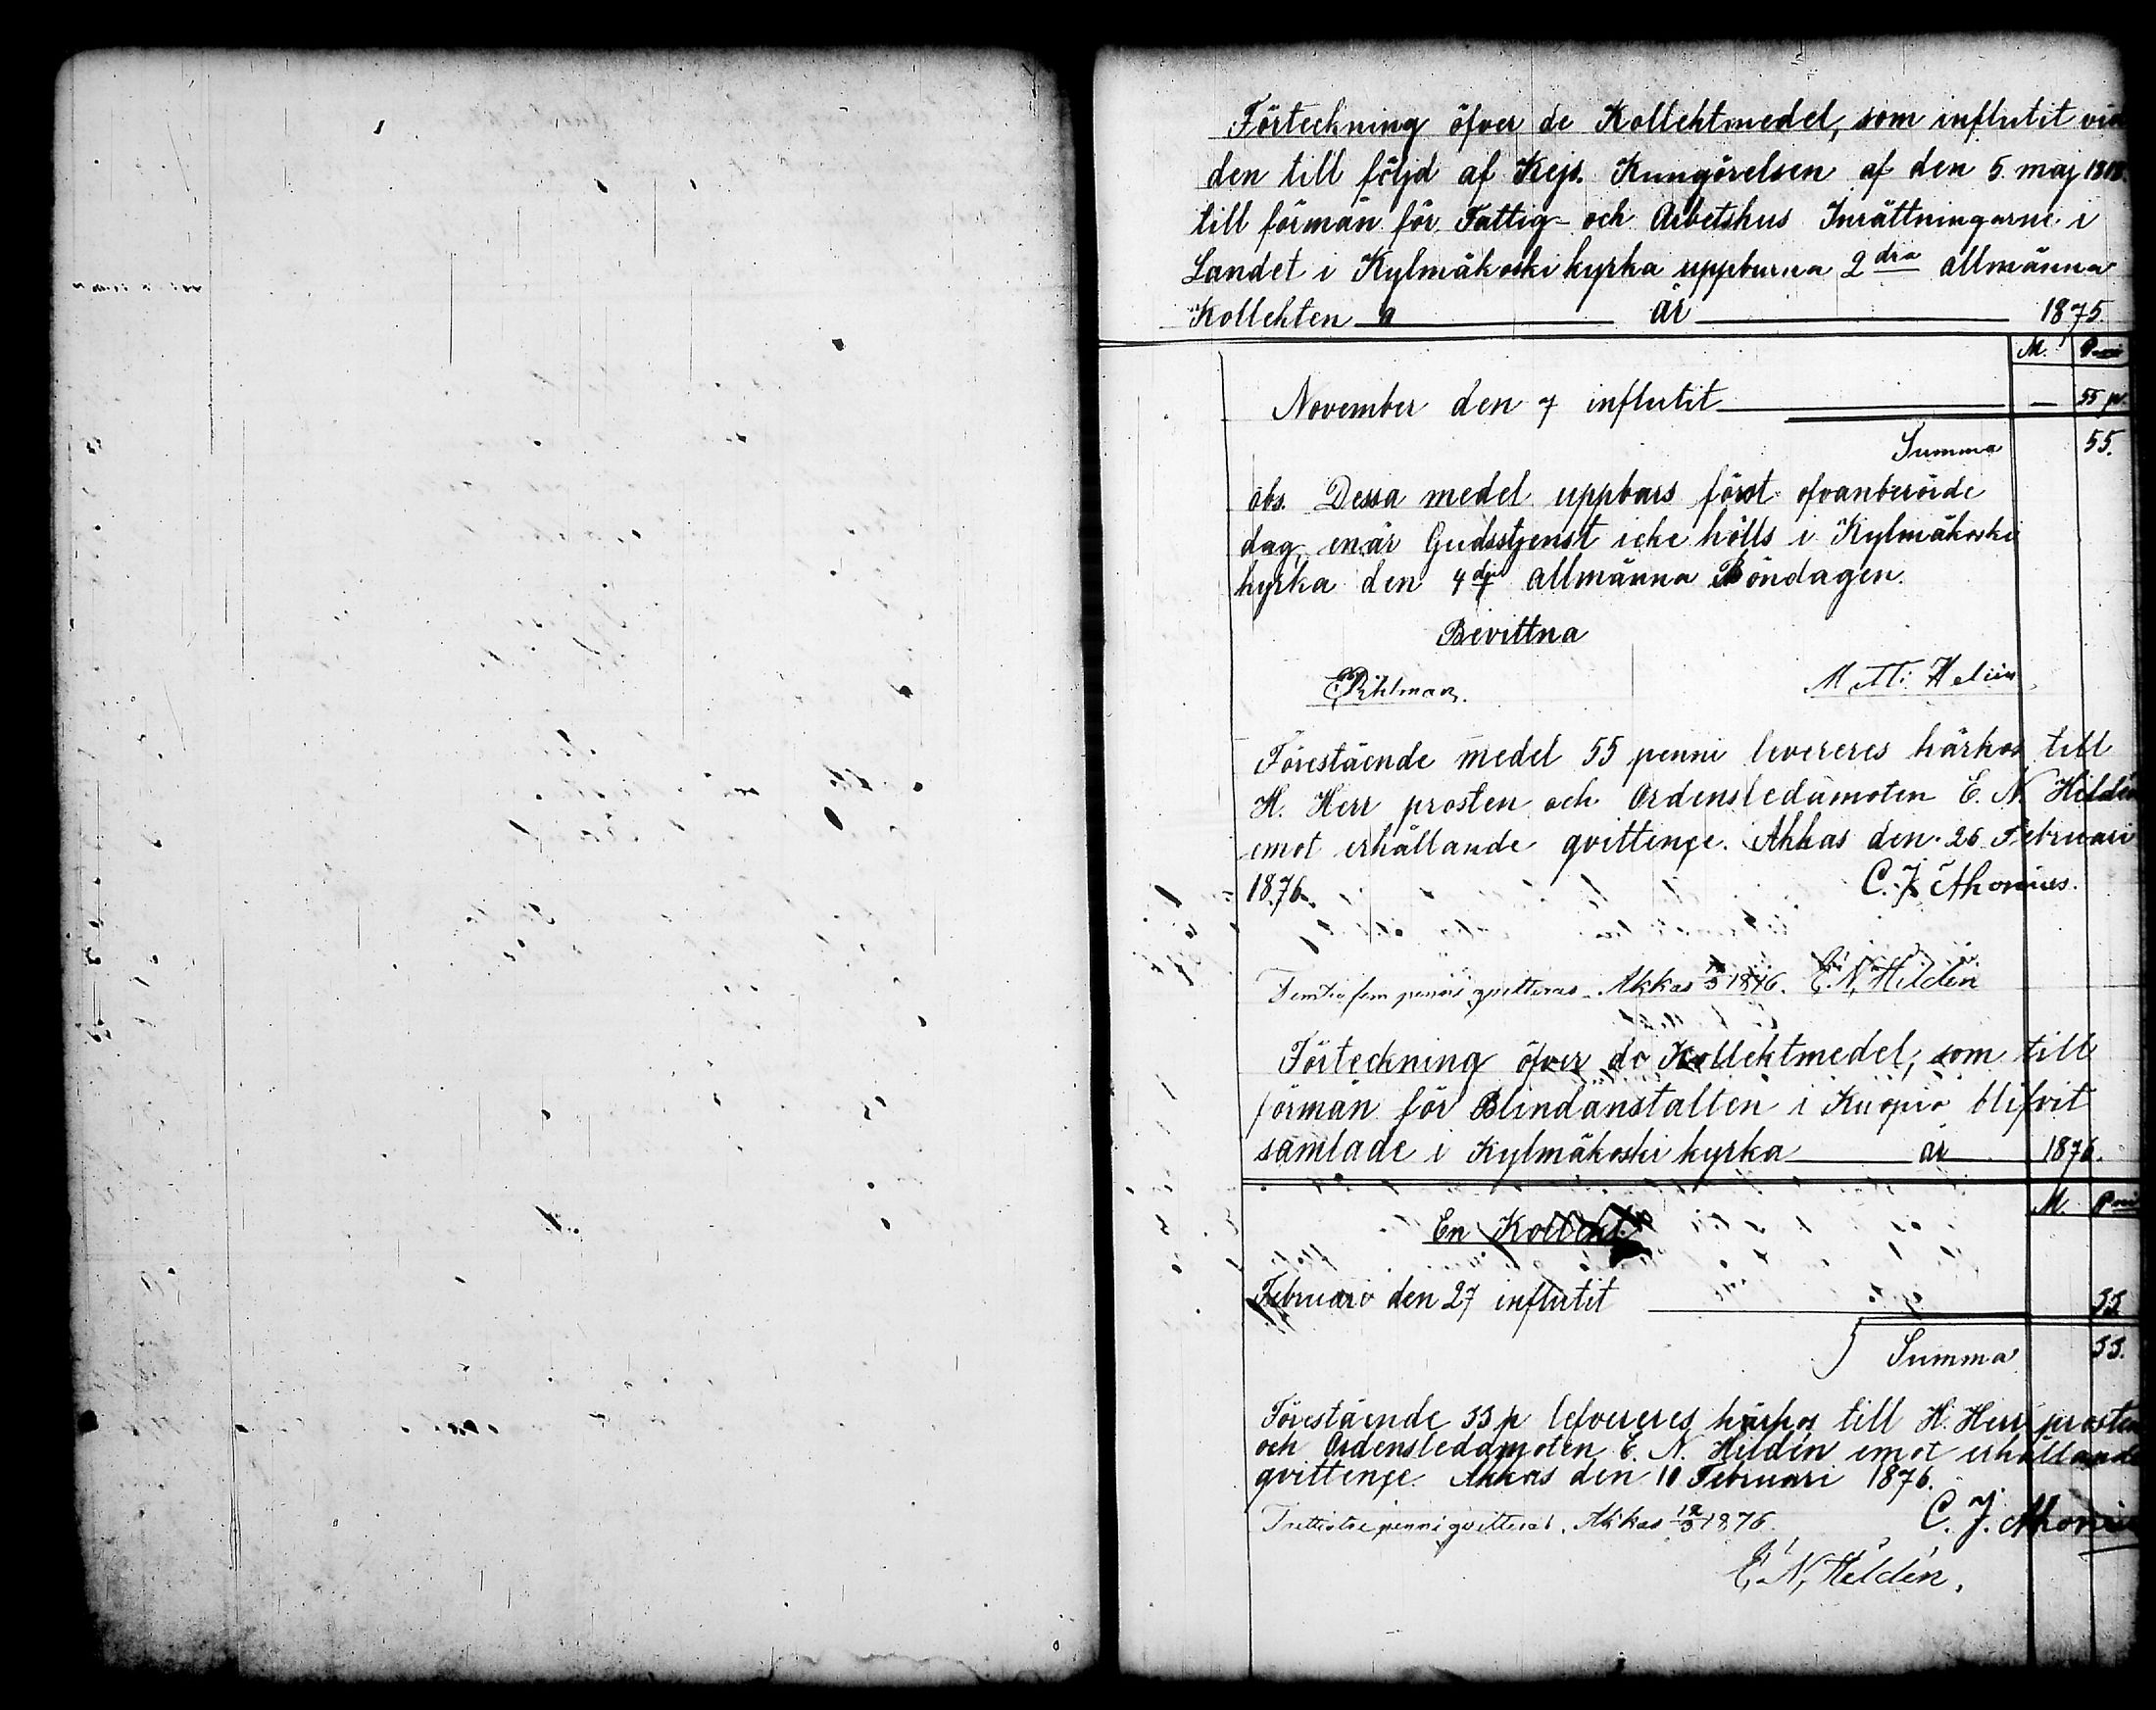 Förteckning öfver de Kollektmedel, som influtit vid
den till följd af Kejs. Kungörelsen af den 5. maj 1808.
till förmån för Fattig- och Arbetshus Inrättningarne i
Landet i Kylmäkoski kyrka uppburna 2dra allmänna
Kollekten a år 1875.
M. Penni
November den 7 influtit — 55 p.
Summa 55.
obs. Dessa medel uppbars först ofvanberörde
dag, enär Gudsstjenst icke hölls i Kylmäkoski
kyrka den 4dje allmänna Böndagen.
Bevittna
Pihlman. Matti Helin
Förestående medel 55 penni levereres härhos till
H. Herr prosten och Ordensledamoten E. N. Hildén
emot erhållande qvittenge. Akkas den 26 Februari
1876. C. J. Ahonius.
Femtiofem penni qvitteras. Akkas 1/3 1876. E. N. Hildén
Förteckning öfver de Kollektmedel, som till
förmån för Blindanstalten i Kuopio blifvit
samlade i Kylmäkoski kyrka år 1876.
M. Penni
En Kollekt.
Februari den 27 influtit 33
Summa 33.
Förestående 33 p lefvereres härhos till H. Herr prosten
och Ordensledamoten E. N. Hildén emot erhållande
qvittenge. Akkas den 10 Februari 1876.
Trettiotre penni qvitteras. Akkas 12/3 1876. C. J. Ahonius
E. N. Hildén.